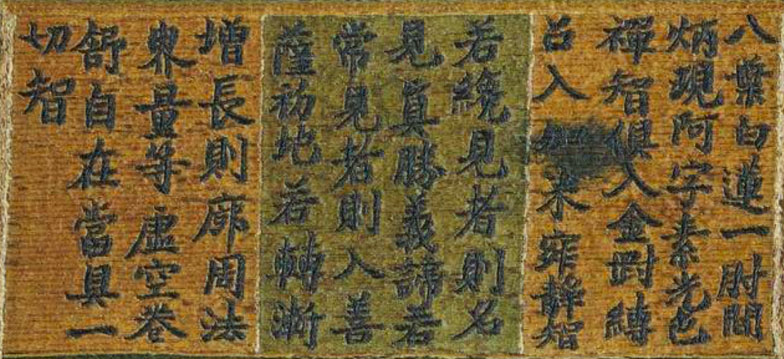 八葉白蓮一肘間
炳現阿字素光色
禪智俱入金剛縛
召入如来寂靜智
若纔見者則名
見真勝義諦若
常見者則入善
薩初地若轉漸
增長則廓周法
界量等虛空卷
舒自在當具一
切智